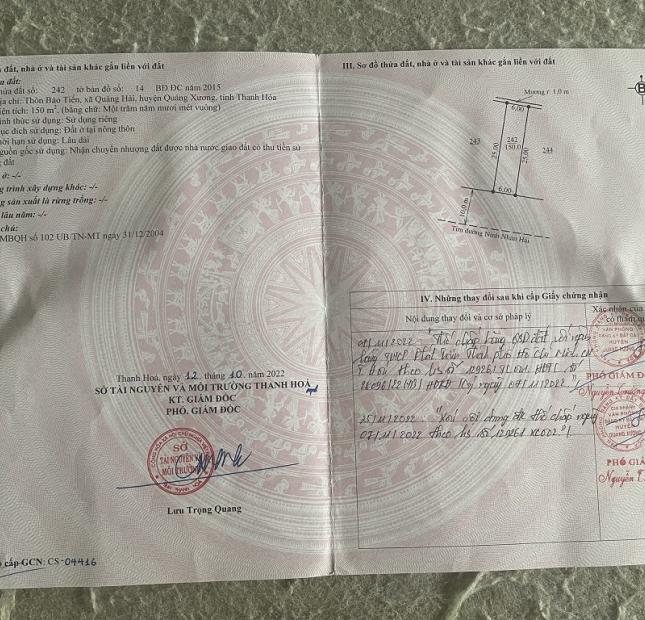 đất, nhà ở và tài sản khác gắn liền với đất
đất:
thửa đất số: 242 tờ bản đồ số: 14 BĐ ĐC năm 2015
chỉ: Thôn Bào Tiến, xã Quảng Hải, huyện Quảng Xương, tỉnh Thanh Hóa
tích: 150 m², (bằng chữ: Một trăm năm mươi mét vuông)
thức sử dụng: Sử dụng riêng
đích sử dụng: Đất ở tại nông thôn
hạn sử dụng: Lâu dài
nguồn gốc sử dụng: Nhận chuyển nhượng đất được nhà nước giao đất có thu tiền sử
đất
ở: -/-
trình xây dựng khác: -/-
sản xuất là rừng trồng: -/-
lâu năm: -/-
chú:
MBQH số 102 UB/TN-MT ngày 31/12/2004
Thanh Hoá, ngày 12 tháng 10 năm 2022
SỞ TÀI NGUYÊN VÀ MÔI TRƯỜNG THANH HOÁ
KT. GIÁM ĐỐC
PHÓ. GIÁM ĐỐC
SỞ
TÀI NGUYÊN VÀ
MÔI TRƯỜNG
Lưu Trọng Quang
cấp GCN: CS-04416
III. Sơ đồ thửa đất, nhà ở và tài sản khác gắn liền với đất
B
Mương r: 1,0 m
6,00
243
25,00
242
150,0
25,00
244
6,00
10,0 m
Tim đường Ninh Nhân Hải
IV. Những thay đổi sau khi cấp Giấy chứng nhận
Nội dung thay đổi và cơ sở pháp lý
Xác nhận của
có thẩm qu
07/11/2022 Thế chấp bằng QSD đất với ngày
07/11/2022
PHÓ GIÁM Đ
25/11/2022 "Xoá nội dung thế chấp ngày
07/11/2022 theo hs số
PHÓ GIÁ
Nguyễn